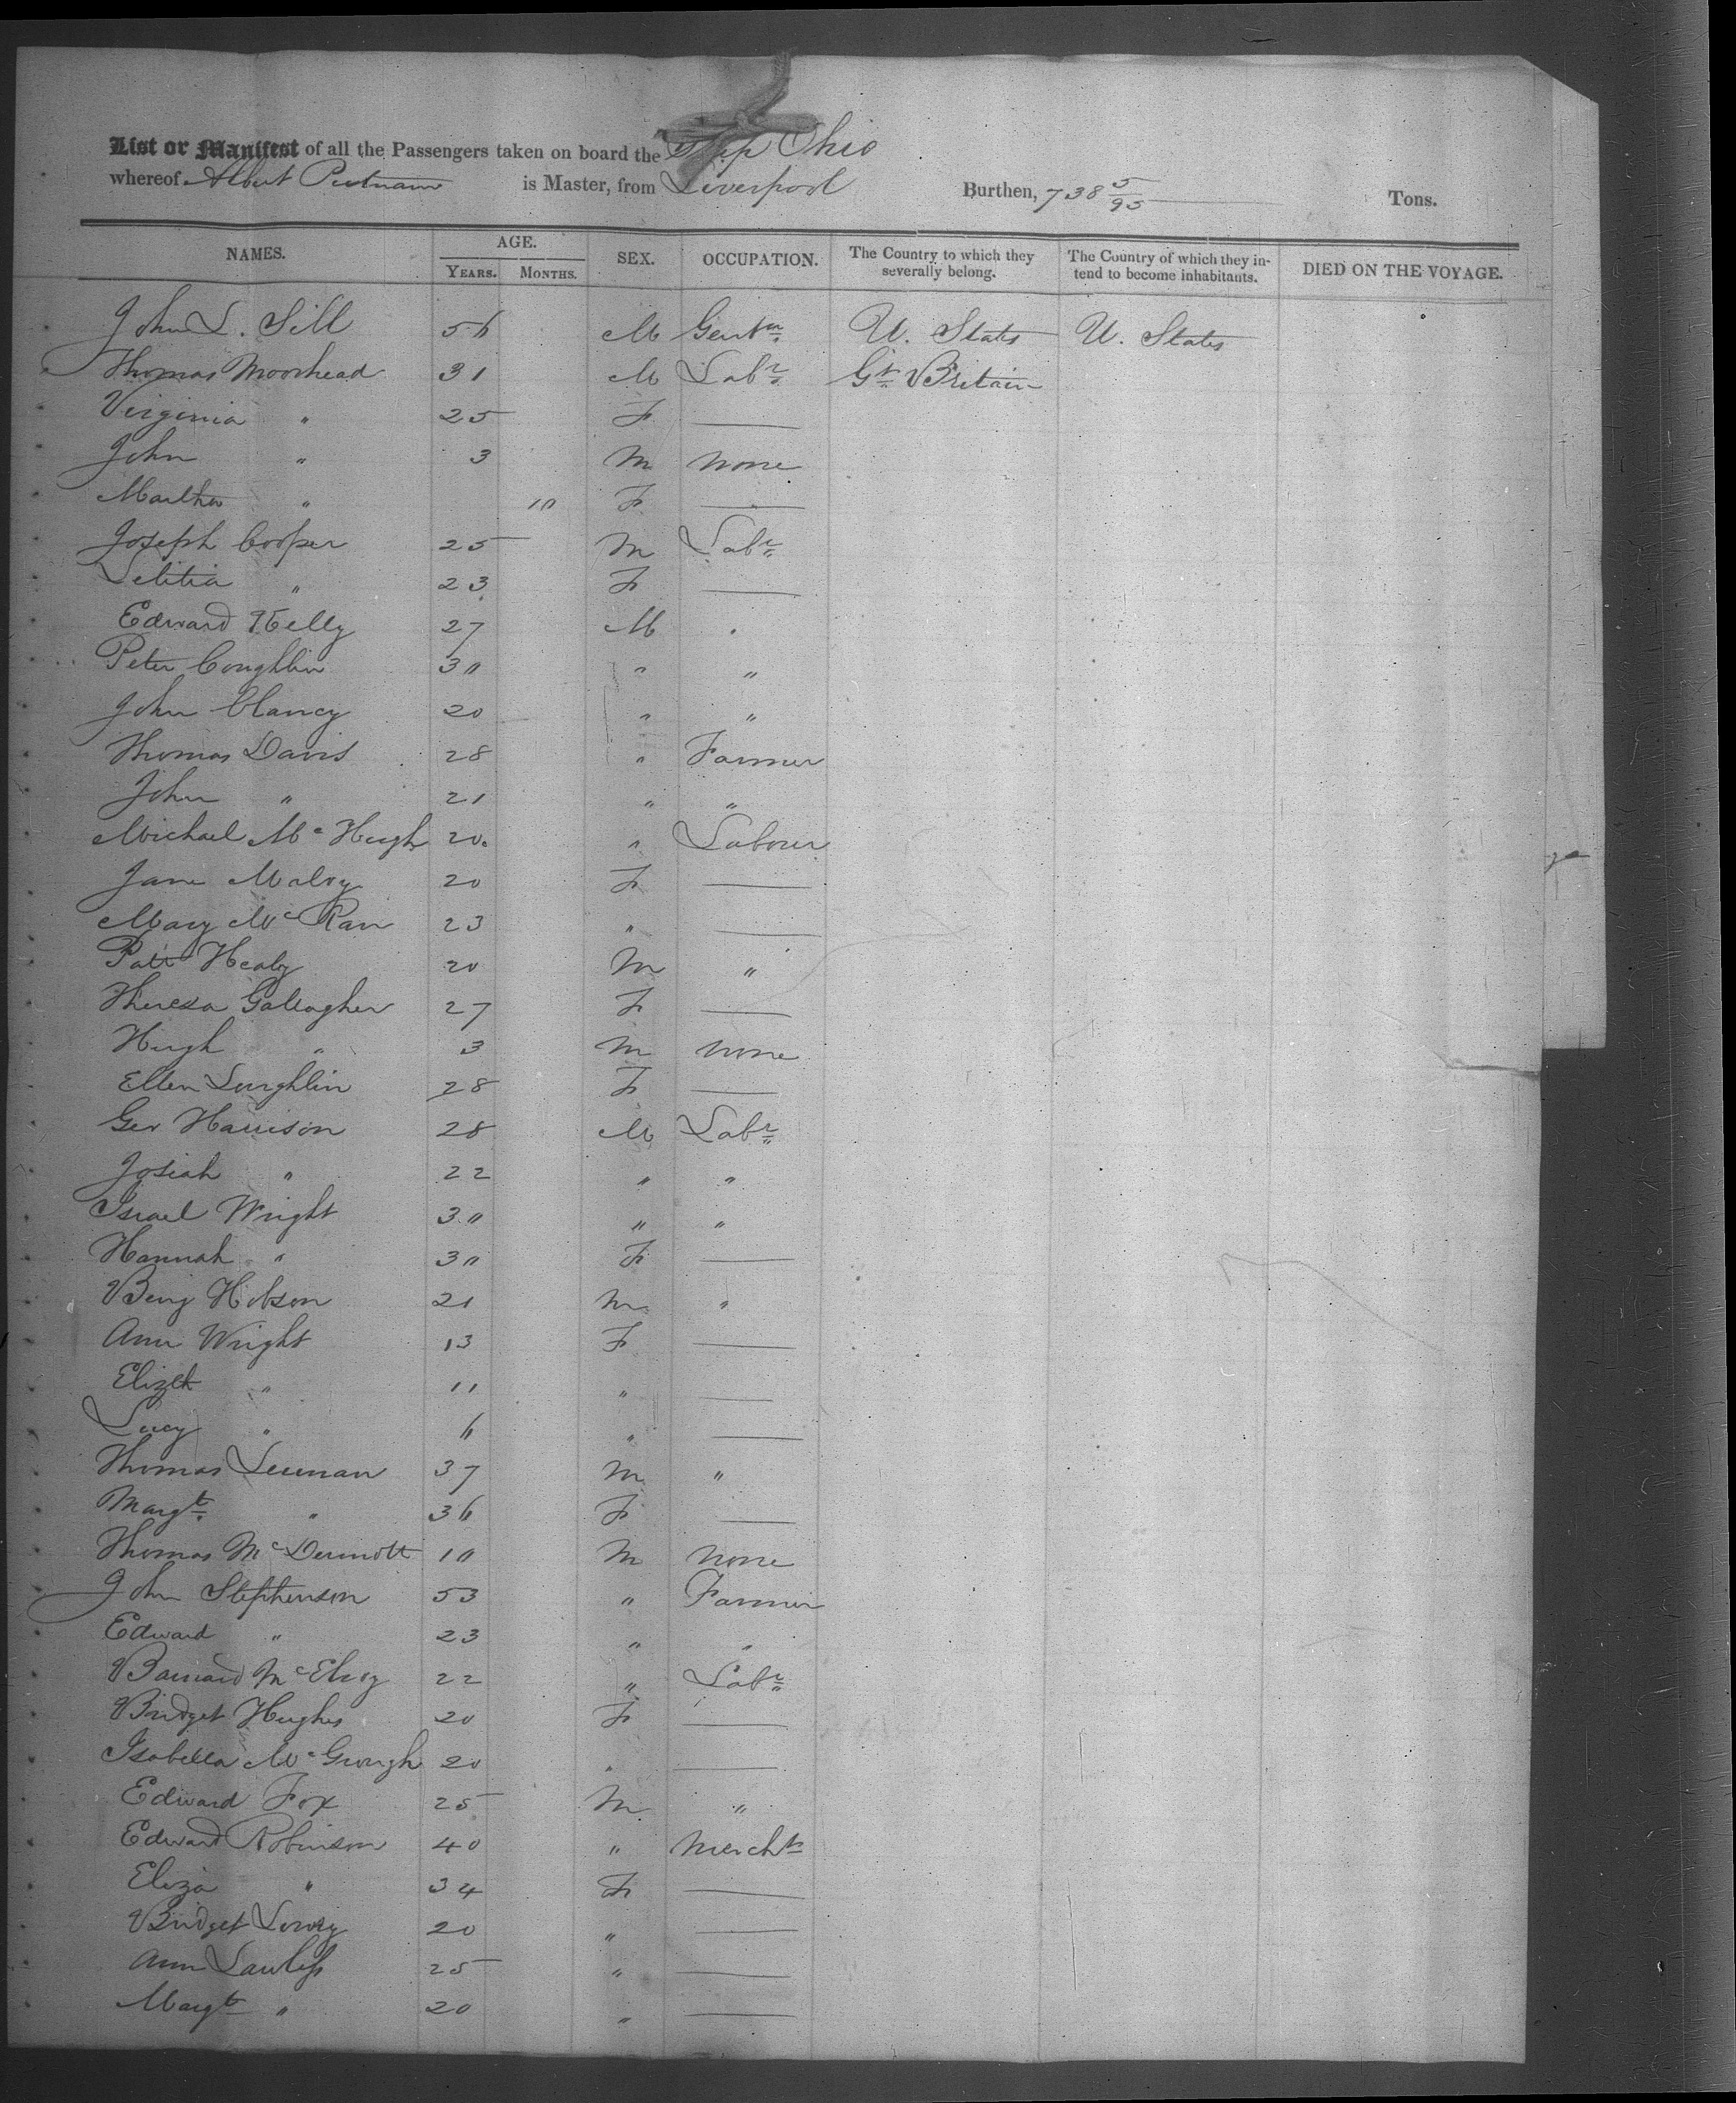 List or Manifest of all the Passengers taken on board the Ship Ohio
whereof Albert Putnam is Master, from Liverpool Burthen, 738 5/95 Tons.
NAMES. AGE. YEARS. MONTHS. SEX. OCCUPATION. The Country to which they severally belong. The Country of which they intend to become inhabitants. DIED ON THE VOYAGE.
John L. Sill 56 M Gentn U. States U. States
Thomas Moorhead 31 M Labr Gt Britain
Virginia " 25 F —
John " 3 M None
Martha " 10 F —
Joseph Cooper 25 M Labr
Letitia " 23 F —
Edward Kelly 27 M "
Peter Coughlin 30 " "
John Clancy 20 " "
Thomas Davis 28 " Farmer
John " 21 " "
Michael Mc Hugh 20 " Labourer
Jane Maloy 20 F —
Mary Mc Ran 23 " —
Patt Healy 20 M "
Theresa Gallagher 27 F —
Hugh " 3 M None
Ellen Loughlin 28 F —
Geo Harrison 28 M Labr
Josiah " 22 " "
Israel Wright 30 " "
Hannah " 30 F —
Benj Hobson 21 M "
Ann Wright 13 F —
Elizth " 11 " —
Lucy " 6 " —
Thomas 37 M "
Margt " 36 F —
Thomas McDermott 10 M None
John Stephenson 53 " Farmer
Edward " 23 " "
Barnard McElroy 22 " Labr
Bridget Hughes 20 F —
Isabella Mc Gough 20 " —
Edward Fox 25 M "
Edward Robinson 40 " Mercht
Eliza " 34 F —
Bridget Lowry 20 " —
Ann Lawless 25 " —
Margt " 20 " —